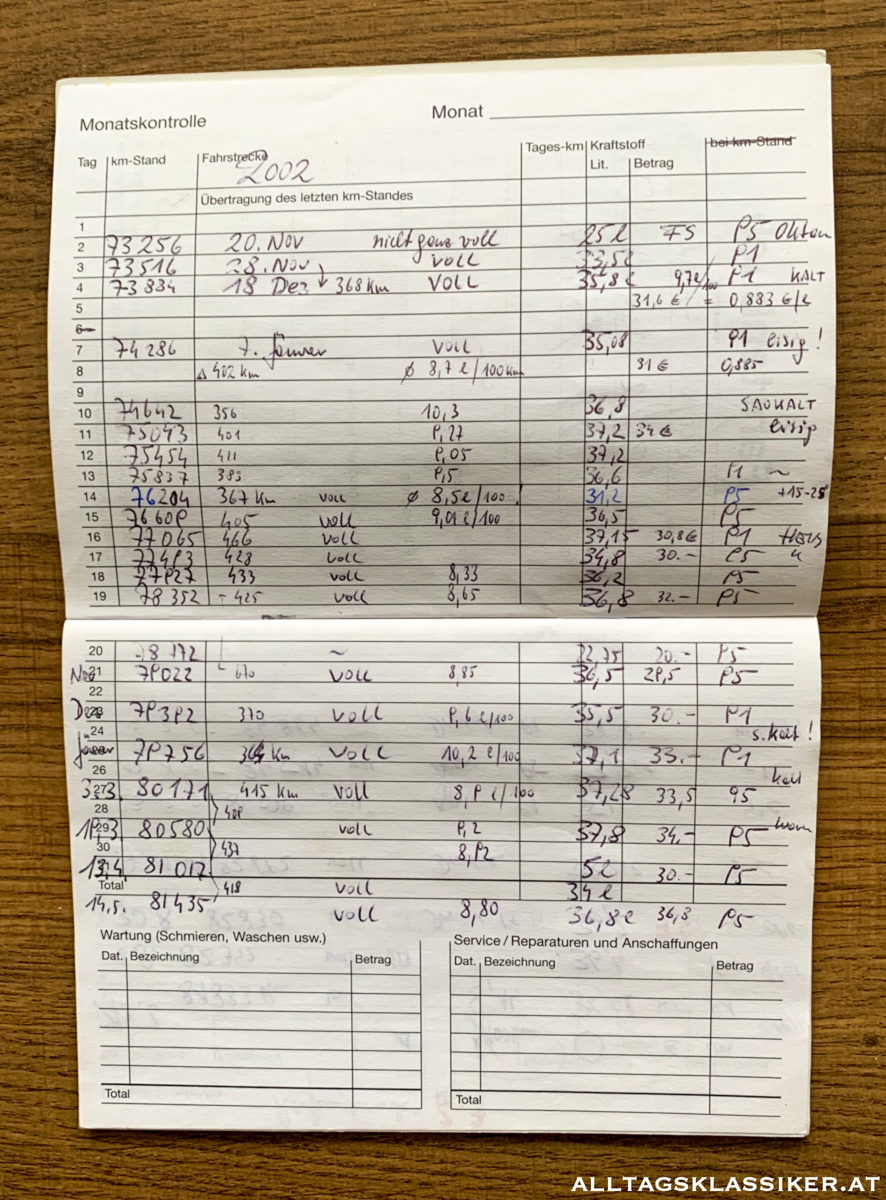 Monatskontrolle Monat
Tag km-Stand Fahrstrecke Tages-km Kraftstoff bei km-Stand
2002 Lit. Betrag
Übertragung des letzten km-Standes
1
2 73256 20. Nov nicht ganz voll 25 l FS 95 Oktan
3 73516 28. Nov voll 33,5 l 91
4 73884 18 Dez 368 km VOLL 35,8 l 9,7 l/100 91 KALT
5 31,6 € = 0,883 €/l
6
7 74286 7. Jänner voll 35,08 91 eisig!
8 Δ 402 km ø 8,7 l/100 km 31 € 0,885
9
10 74642 356 10,3 36,8 SAUKALT
11 75043 401 9,27 37,2 34 € eisig
12 75454 411 9,05 37,2
13 75837 383 9,5 36,6 91 ~
14 76204 367 km voll ø 8,5 l/100! 31,2 95 +15-25
15 76609 405 voll 9,01 l/100 36,5 95
16 77065 466 voll 37,15 30,8 € 91
17 77493 428 voll 34,8 30.- 95
18 77927 433 voll 8,33 36,2 95
19 78352 - 425 voll 8,65 36,8 32.- 95
20 ~ 22,75 20.- 95
Nov 21 79022 670 voll 8,85 36,5 29,5 95
22
Dez 23 79392 370 voll 9,6 l/100 35,5 30.- 91
24 s. kalt!
Jänner 79756 364 km voll 10,2 l/100 37,1 33.- 91
26 kalt
3.3. 27 80171 415 km voll 8,9 l/100 37,28 33,5 95
28 409 warm
19.3 29 80580 voll 9,2 37,8 34,- 95
30 437 8,92
13.4. 81017 5 l 30.- 95
Total 418 voll 34 l
14.5. 81435 voll 8,80 36,8 l 36,3 95
Wartung (Schmieren, Waschen usw.) Service / Reparaturen und Anschaffungen
Dat. Bezeichnung Betrag Dat. Bezeichnung Betrag
Total Total
ALLTAGSKLASSIKER.AT